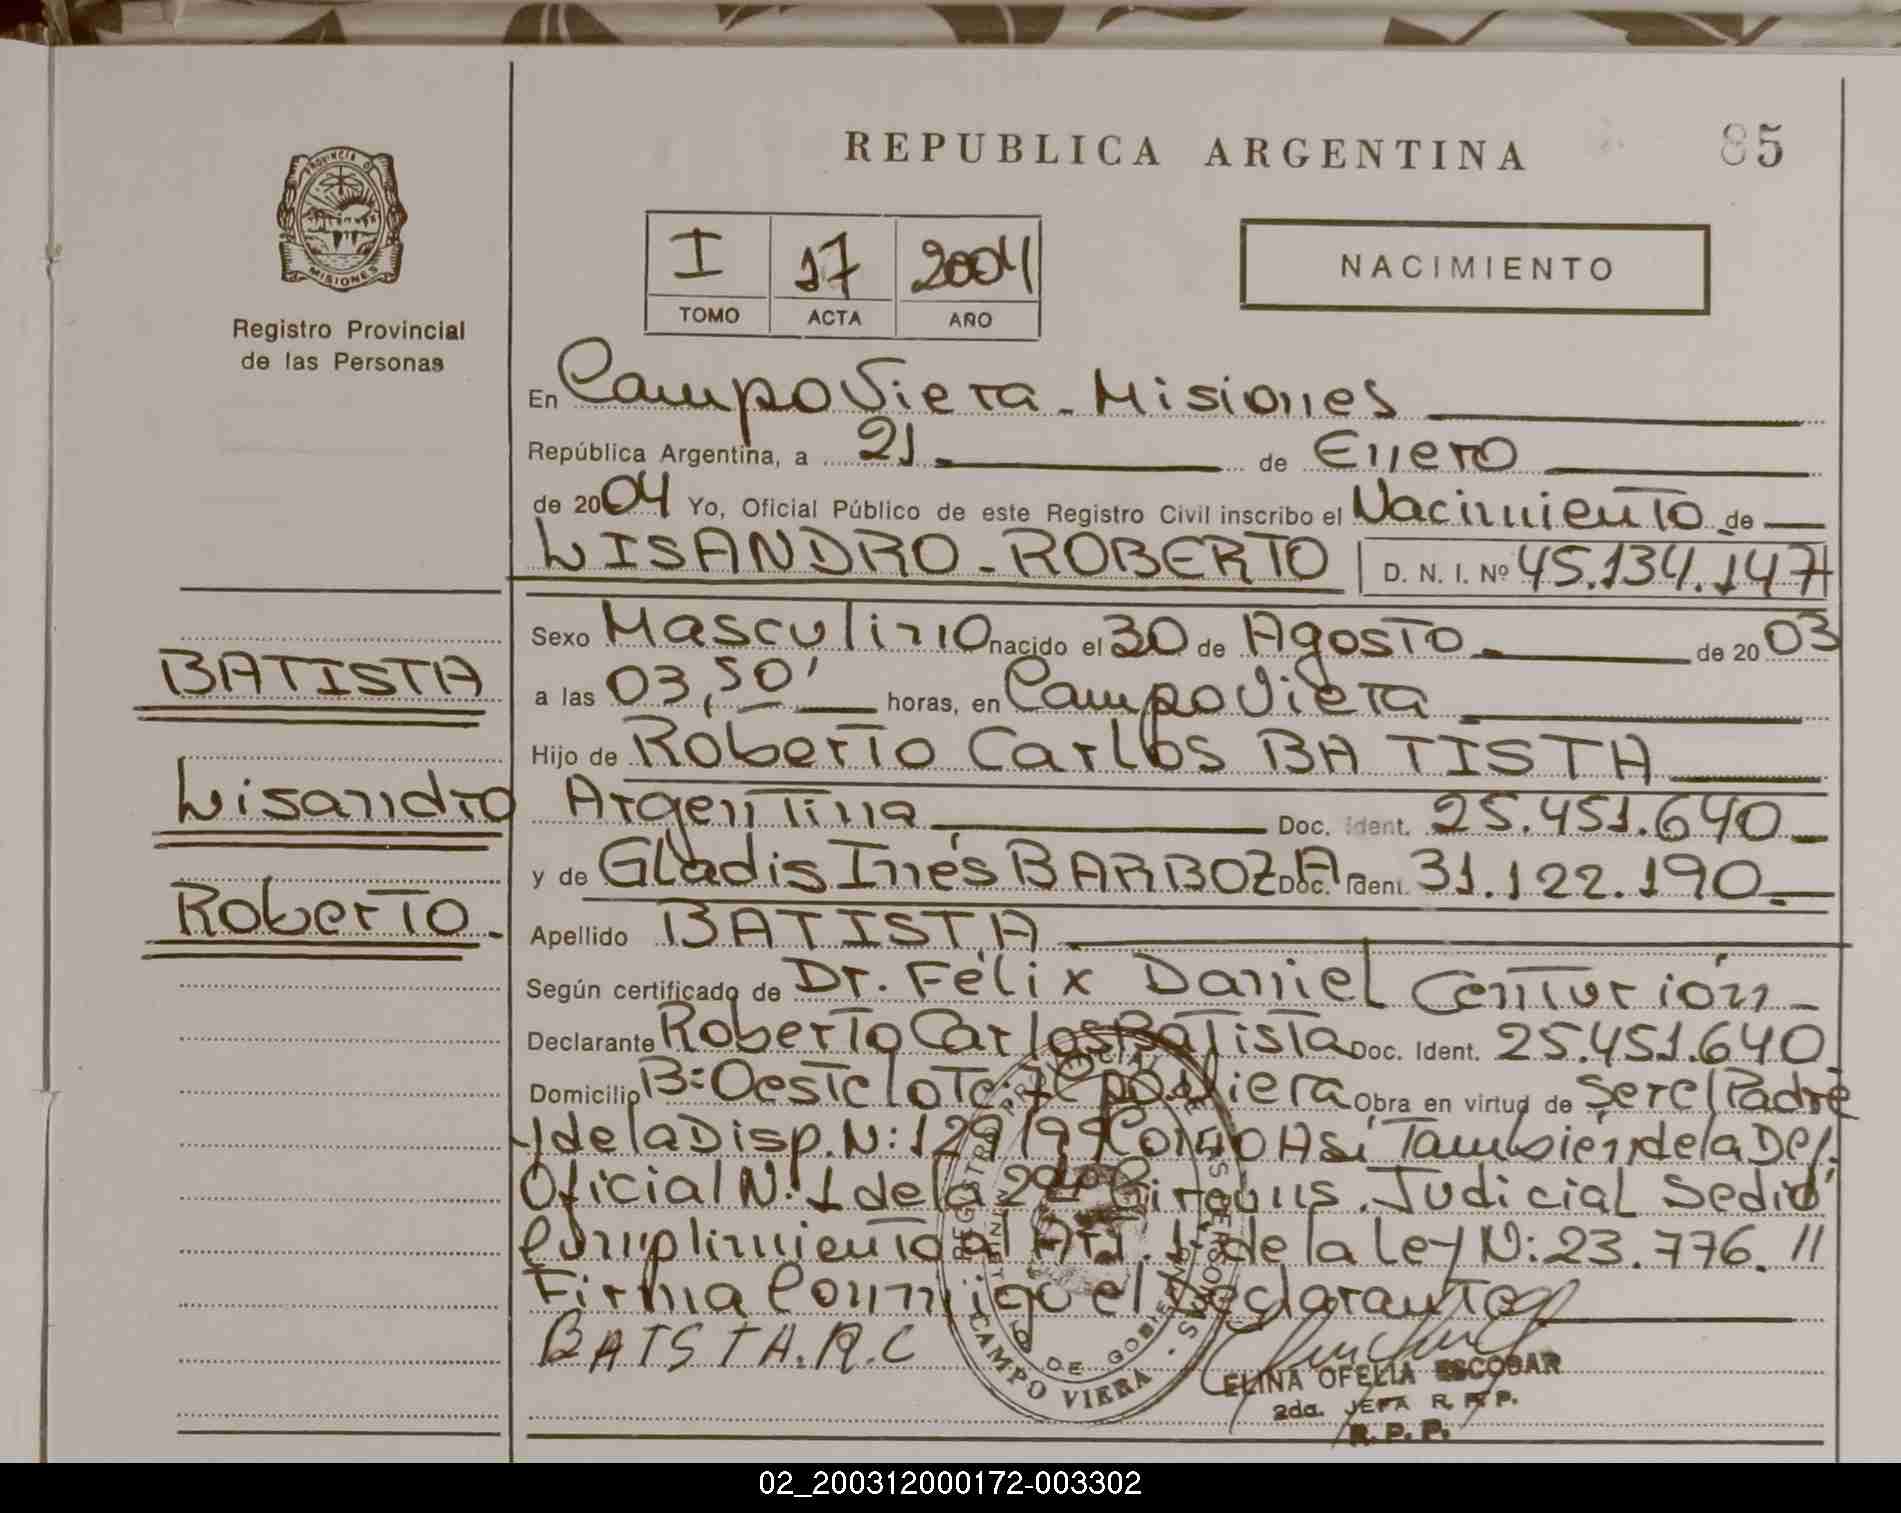 REPUBLICA ARGENTINA
85
PROVINCIA DE
MISIONES
Registro Provincial
de las Personas
I 17 2004
TOMO ACTA AÑO
NACIMIENTO
En Campo Viera - Misiones
República Argentina, a 21 de Enero
de 2004 Yo, Oficial Público de este Registro Civil inscribo el Nacimiento de
LISANDRO - ROBERTO D. N. I. Nº 45.134.147
Sexo Masculino nacido el 30 de Agosto de 2003
BATISTA
a las 03,50' horas, en Campo Viera
Hijo de Roberto Carlos BATISTA
Lisandro
Argentina Doc. Ident. 25.451.640
y de Gladis Inés BARBOZA Doc. Ident. 31.122.190
Roberto.
Apellido BATISTA
Según certificado de Dr. Félix Daniel Centurión
Declarante Roberto Carlos Batista Doc. Ident. 25.451.640
Domicilio B: Oeste Lote Cpo. Viera Obra en virtud de Ser el Padre
y de la Disp. N: 129/99 Como Asi También de la Def.
Oficial N: 1 de la 2da Circuns. Judicial Sedió
Cumplimiento al Art. 1: de la Ley N: 23.776. //
Firma Conmigo el Declarante
BATSTA. R. C
REGISTRO PROVINCIAL DE LAS PERSONAS
DE GOBIERNO
CAMPO VIERA
ELINA OFELIA ESCOBAR
2da. JEFA R. P. P.
R. P. P.
02_200312000172-003302